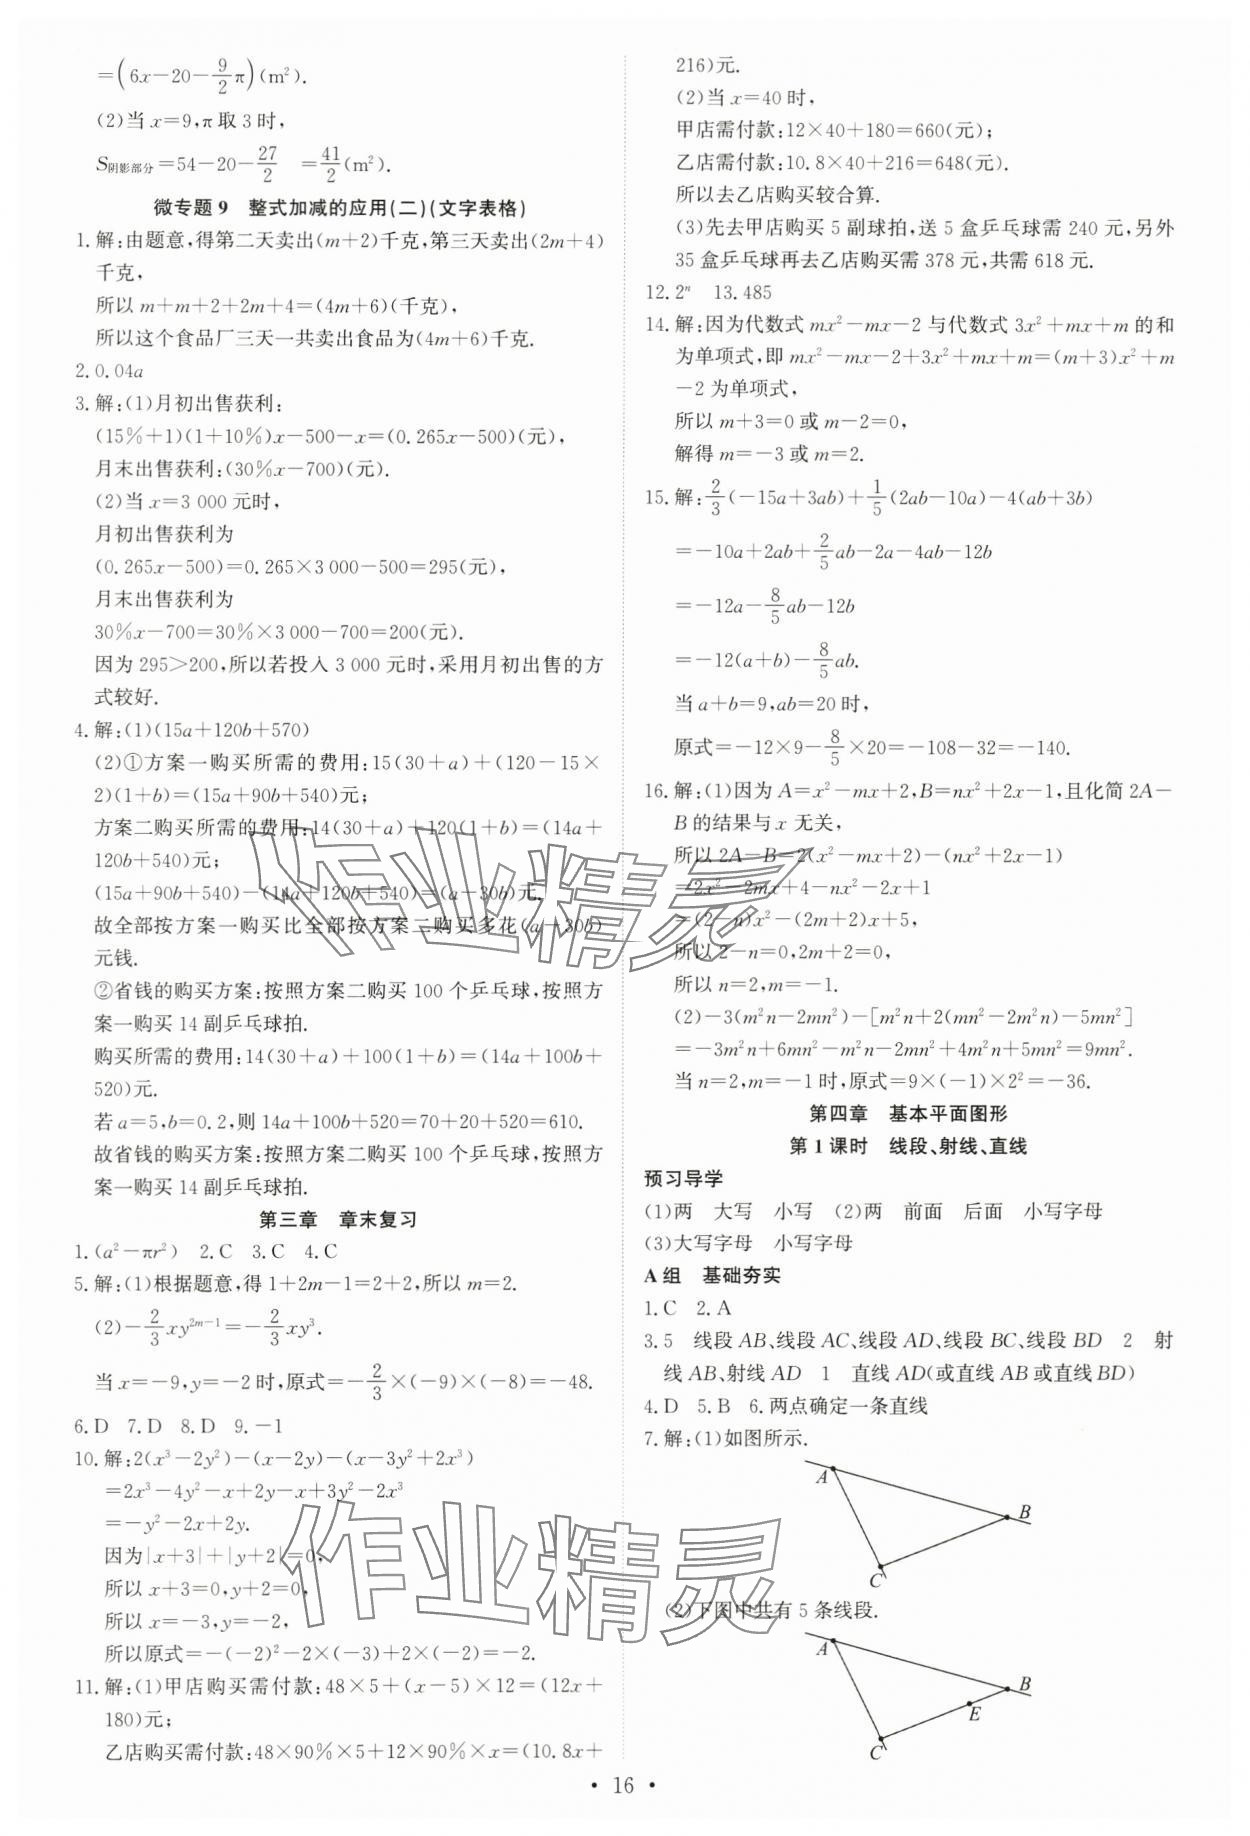 =(6x-20-9/2π)(m²).
(2)当 x=9,π取 3 时,
S阴影部分=54-20-27/2 =41/2(m²).
微专题 9 整式加减的应用(二)(文字表格)
1.解:由题意,得第二天卖出(m+2)千克,第三天卖出(2m+4)
千克,
所以 m+m+2+2m+4=(4m+6)(千克),
所以这个食品厂三天一共卖出食品为(4m+6)千克.
2.0.04a
3.解:(1)月初出售获利:
(15%+1)(1+10%)x-500-x=(0.265x-500)(元),
月末出售获利:(30%x-700)(元).
(2)当 x=3 000 元时,
月初出售获利为
(0.265x-500)=0.265×3 000-500=295(元),
月末出售获利为
30%x-700=30%×3 000-700=200(元).
因为 295>200,所以若投入 3 000 元时,采用月初出售的方
式较好.
4.解:(1)(15a+120b+570)
(2)①方案一购买所需的费用:15(30+a)+(120-15×
2)(1+b)=(15a+90b+540)元;
方案二购买所需的费用:14(30+a)+120(1+b)=(14a+
120b+540)元;
(15a+90b+540)-(14a+120b+540)=(a-30b)元.
故全部按方案一购买比全部按方案二购买多花(a-30b)
元钱.
②省钱的购买方案:按照方案二购买 100 个乒乓球,按照方
案一购买 14 副乒乓球拍.
购买所需的费用:14(30+a)+100(1+b)=(14a+100b+
520)元.
若 a=5,b=0.2,则 14a+100b+520=70+20+520=610.
故省钱的购买方案:按照方案二购买 100 个乒乓球,按照方
案一购买 14 副乒乓球拍.
第三章 章末复习
1.(a²-πr²) 2.C 3.C 4.C
5.解:(1)根据题意,得 1+2m-1=2+2,所以 m=2.
(2)-2/3xy²ᵐ⁻¹=-2/3xy³.
当 x=-9,y=-2 时,原式=-2/3×(-9)×(-8)=-48.
6.D 7.D 8.D 9.-1
10.解:2(x³-2y²)-(x-2y)-(x-3y²+2x³)
=2x³-4y²-x+2y-x+3y²-2x³
=-y²-2x+2y.
因为|x+3|+|y+2|=0,
所以 x+3=0,y+2=0,
所以 x=-3,y=-2,
所以原式=-(-2)²-2×(-3)+2×(-2)=-2.
11.解:(1)甲店购买需付款:48×5+(x-5)×12=(12x+
180)元;
乙店购买需付款:48×90%×5+12×90%×x=(10.8x+
216)元.
(2)当 x=40 时,
甲店需付款:12×40+180=660(元);
乙店需付款:10.8×40+216=648(元).
所以去乙店购买较合算.
(3)先去甲店购买 5 副球拍,送 5 盒乒乓球需 240 元,另外
35 盒乒乓球再去乙店购买需 378 元,共需 618 元.
12.2ⁿ 13.485
14.解:因为代数式 mx²-mx-2 与代数式 3x²+mx+m 的和
为单项式,即 mx²-mx-2+3x²+mx+m=(m+3)x²+m
-2 为单项式,
所以 m+3=0 或 m-2=0,
解得 m=-3 或 m=2.
15.解:2/3(-15a+3ab)+1/5(2ab-10a)-4(ab+3b)
=-10a+2ab+2/5ab-2a-4ab-12b
=-12a-8/5ab-12b
=-12(a+b)-8/5ab.
当 a+b=9,ab=20 时,
原式=-12×9-8/5×20=-108-32=-140.
16.解:(1)因为 A=x²-mx+2,B=nx²+2x-1,且化简 2A-
B 的结果与 x 无关,
所以 2A-B=2(x²-mx+2)-(nx²+2x-1)
=2x²-2mx+4-nx²-2x+1
=(2-n)x²-(2m+2)x+5,
所以 2-n=0,2m+2=0,
所以 n=2,m=-1.
(2)-3(m²n-2mn²)-[m²n+2(mn²-2m²n)-5mn²]
=-3m²n+6mn²-m²n-2mn²+4m²n+5mn²=9mn².
当 n=2,m=-1 时,原式=9×(-1)×2²=-36.
第四章 基本平面图形
第 1 课时 线段、射线、直线
预习导学
(1)两 大写 小写 (2)两 前面 后面 小写字母
(3)大写字母 小写字母
A 组 基础夯实
1.C 2.A
3.5 线段 AB、线段 AC、线段 AD、线段 BC、线段 BD 2 射
线 AB、射线 AD 1 直线 AD(或直线 AB 或直线 BD)
4.D 5.B 6.两点确定一条直线
7.解:(1)如图所示.
A
B
C
(2)下图中共有 5 条线段.
A
B
E
C
• 16 •
作业精灵
作业精灵